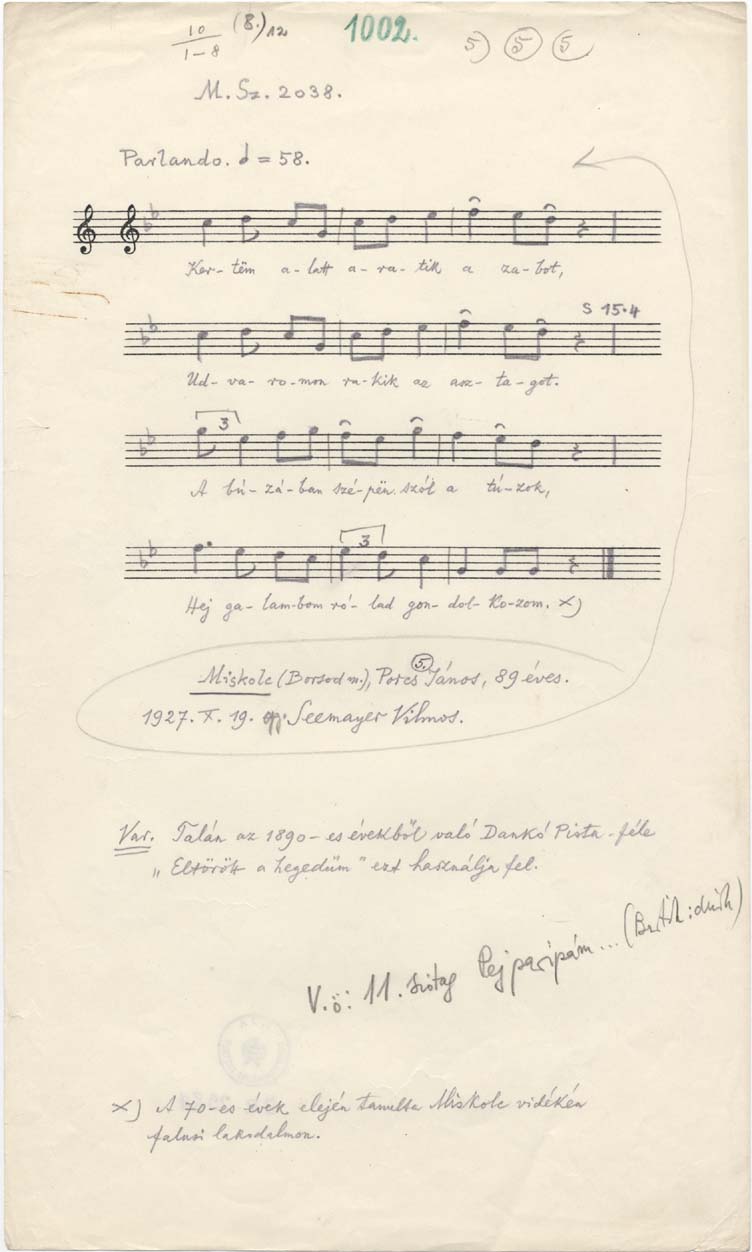 10 (8.) 12
1-8
1002.
5) 5 5
M. Sz. 2038.
Parlando. = 58.
Ker- tëm a- latt a- ra- tik a za- bot,
S 15.4
Ud- va- ro- mon ra- kik az asz- ta- got.
3
A bú- zá- ban szé- pën szól a tú- zok,
3
Hej ga- lam- bom ró- lad gon- dol- ko- zom. x)
5.
Miskolc (Borsod m.), Porcs János, 89 éves.
1927. X. 19. Seemayer Vilmos.
Var. Talán az 1890-es évekből való Dankó Pista-féle
„Eltörött a hegedűm" ezt használja fel.
V.ö: 11. szótag Pej paripám... (Bartók:
x) A 70-es évek elején tanulta Miskolc vidékén
falusi lakodalmon.